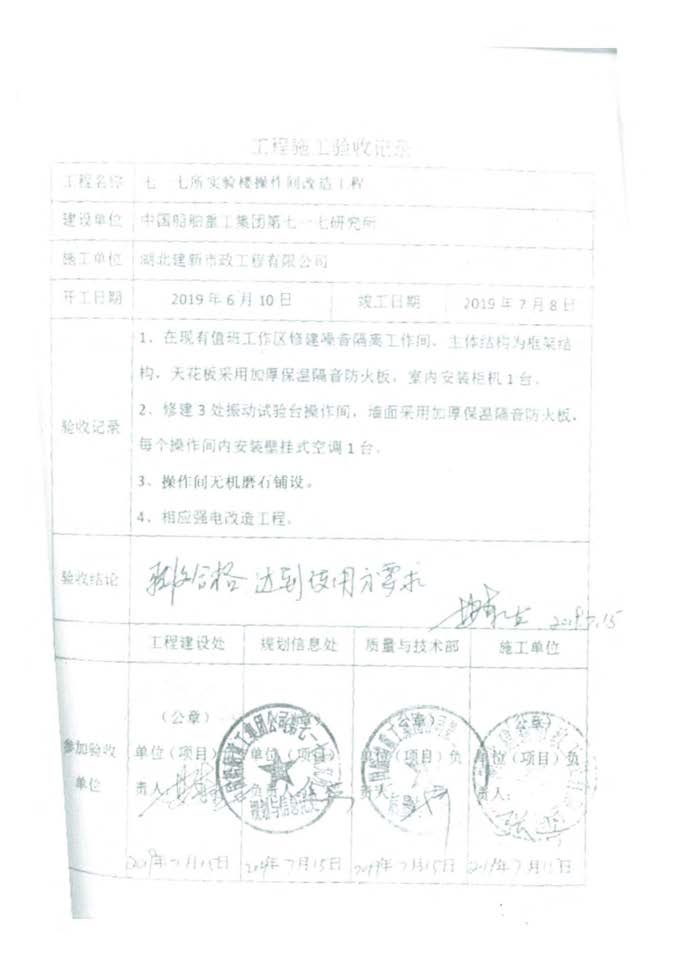 工程施工验收记录
工程名称 七一七所实验楼操作间改造工程
建设单位 中国船舶重工集团第七一七研究所
施工单位 湖北建新市政工程有限公司
开工日期 2019年6月10日 竣工日期 2019年7月8日
验收记录
1、在现有值班工作区修建噪音隔离工作间,主体结构为框架结
构,天花板采用加厚保温隔音防火板,室内安装柜机1台。
2、修建3处振动试验台操作间,墙面采用加厚保温隔音防火板,
每个操作间内安装壁挂式空调1台。
3、操作间无机磨石铺设。
4、相应强电改造工程。
验收结论 验收合格 达到使用方要求
2019.7.15
工程建设处 规划信息处 质量与技术部 施工单位
参加验收
单位
(公章) (公章) (公章)
单位(项目) 单位(项目) 单位(项目)负 单位(项目)负
责人: 负责人: 责人: 责人:
规划与信息化处
2019年7月15日 2019年7月15日 2019年7月15日 2019年7月15日